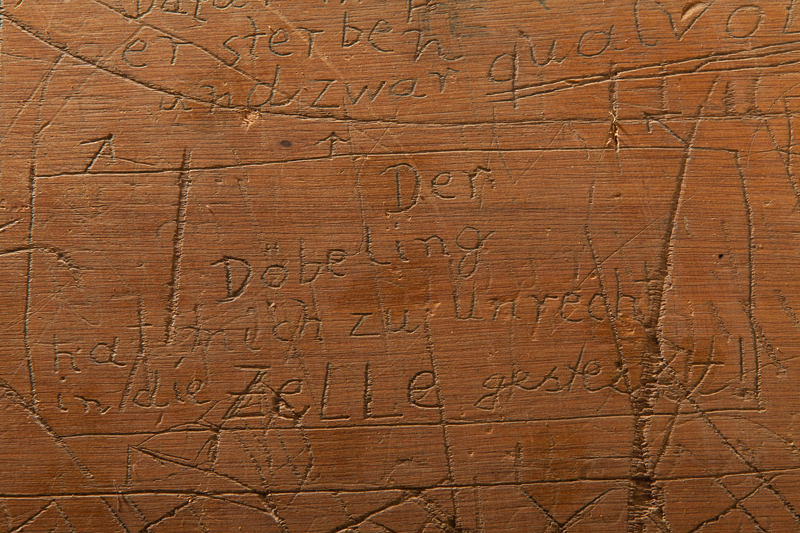 er sterben
und zwar qualvol
Der
Döbeling
hat mich zu Unrecht
in die ZELLE gesteckt!!